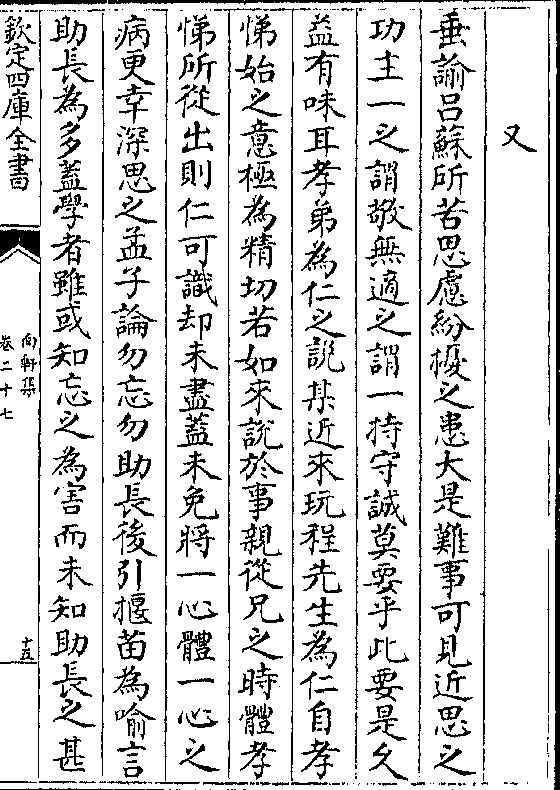 又
垂諭呂蘇所苦思慮紛擾之患大是難事可見近思之
功主一之謂敬無適之謂一持守誠莫要乎此要是久
益有味耳孝弟為仁之說某近來玩程先生為仁自孝
悌始之意極為精切若如來說於事親從兄之時體孝
悌所從出則仁可識却未盡蓋未免將一心體一心之
病更幸深思之孟子論勿忘勿助長後引揠苗為喻言
助長為多蓋學者雖或知忘之為害而未知助長之甚
欽定四庫全書
南軒集
卷二十七
十五